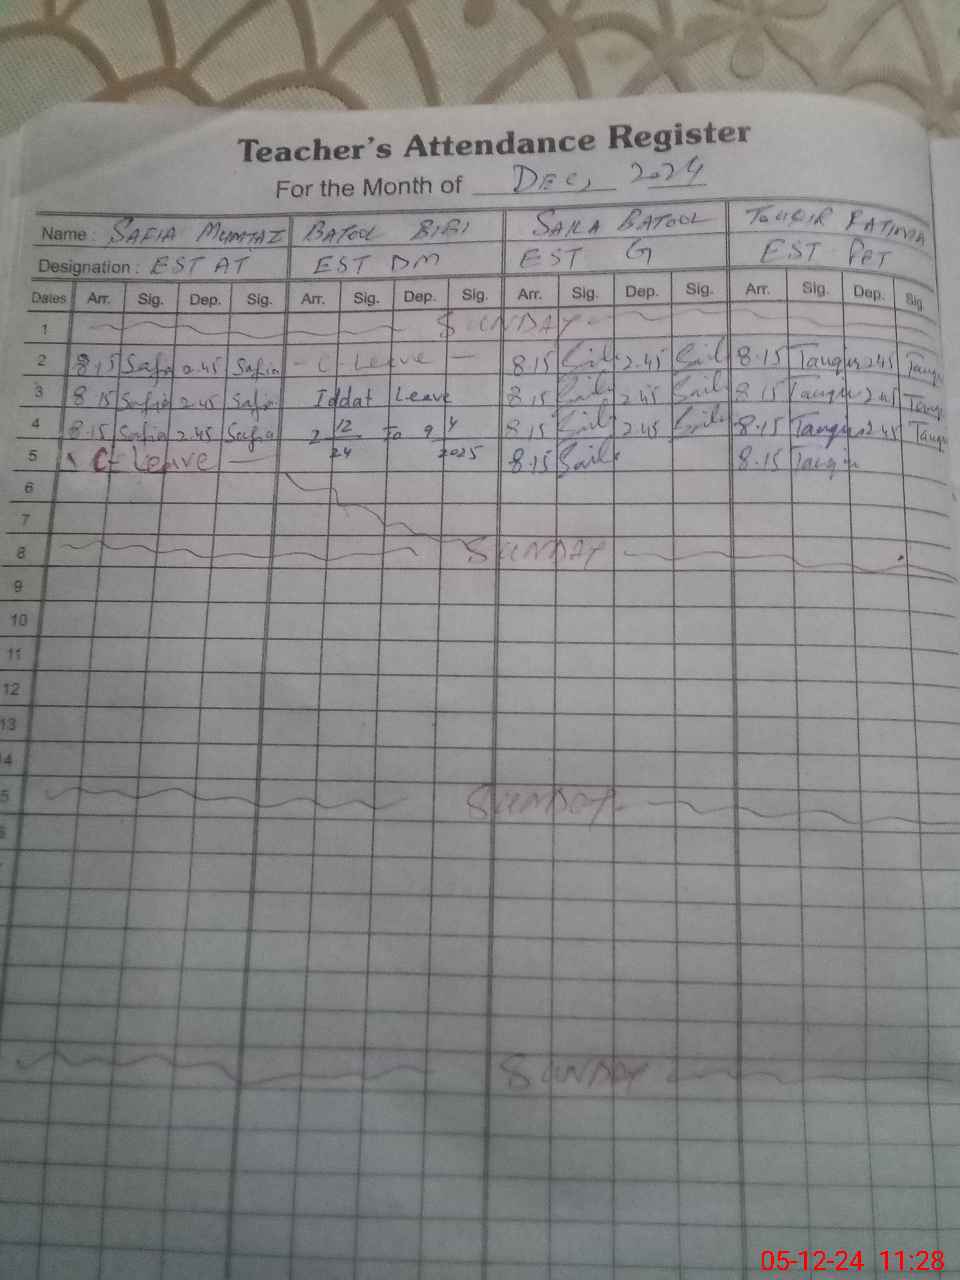 Teacher's Attendance Register
For the Month of DEC, 2024
Name : SAFIA MUMTAZ BATOOL BIBI SAIRA BATOOL TOUQIR FATIMA
Designation : EST AT EST DM EST G EST PET
Dates Arr. Sig. Dep. Sig. Arr. Sig. Dep. Sig. Arr. Sig. Dep. Sig. Arr. Sig. Dep. Sig.
1 SUNDAY
2 8.15 Safia 2.45 Safia - C - Leave - 8.15 2.45 8.15 2.45
3 8.15 Safia 2.45 Safia Iddat Leave 8.15 2.45 8.15 2.45
4 8.15 Safia 2.45 Safia 2 12/24 To 9 4 2025 8.15 2.45 8.15 2.45
5 C- Leave 8.15 8.15
6
7
8 SUNDAY
9
10
11
12
13
4
5 SUNDAY
SUNDAY
05-12-24 11:28